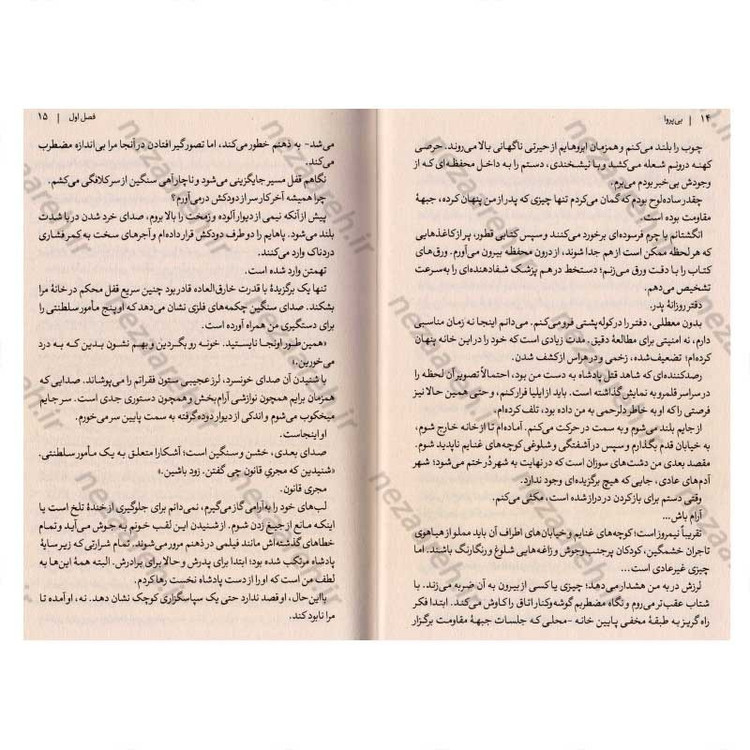 ۱۴ | بی‌پروا
چوب را بلند می‌کنم و همزمان ابروهایم از حیرتی ناگهانی بالا می‌روند. حرصی
کهنه درونم شعله می‌کشد و با نیشخندی، دستم را به داخل محفظه‌ای که از
وجودش بی‌خبر بودم می‌برم.
چقدر ساده‌لوح بودم که گمان می‌کردم تنها چیزی که پدر از من پنهان کرده، جبههٔ
مقاومت بوده است.
انگشتانم با چرم فرسوده‌ای برخورد می‌کنند و سپس کتابی قطور، پر از کاغذهایی
که هر لحظه ممکن است از هم جدا شوند، از درون محفظه بیرون می‌آورم. ورق‌های
کتاب را با دقت ورق می‌زنم؛ دستخط در هم پزشک شفادهنده‌ای را به‌سرعت
تشخیص می‌دهم.
دفتر روزانهٔ پدر.
بدون معطلی، دفتر را در کوله‌پشتی فرو می‌کنم. می‌دانم اینجا نه زمان مناسبی
دارم، نه امنیتی برای مطالعهٔ دقیق. مدت زیادی است که خود را در این خانه پنهان
کرده‌ام؛ تضعیف‌شده، زخمی و در هراس از کشف شدن.
رصدکننده‌ای که شاهد قتل پادشاه به دست من بود، احتمالاً تصویر آن لحظه را
در سراسر قلمرو به نمایش گذاشته است. باید از ایلیا فرار کنم، و حتی همین حالا نیز
فرصتی را که او به خاطر دلرحمی به من داده بود، تلف کرده‌ام.
از جایم بلند می‌شوم و به سمت در حرکت می‌کنم. آماده‌ام تا از خانه خارج شوم،
به خیابان قدم بگذارم و سپس در آشفتگی و شلوغی کوچه‌های غنایم ناپدید شوم.
مقصد بعدی من دشت‌های سوزان است که در نهایت به شهر دُر ختم می‌شود؛ شهر
آدم‌های عادی، جایی که هیچ برگزیده‌ای وجود ندارد.
وقتی دستم برای باز کردن در دراز شده است، مکثی می‌کنم.
آرام باش...
تقریباً نیمروز است؛ کوچه‌های غنایم و خیابان‌های اطراف آن باید مملو از هیاهوی
تاجران خشمگین، کودکان پرجنب‌وجوش و زاغه‌هایی شلوغ و رنگارنگ باشند. اما
چیزی غیرعادی است...
لرزش در به من هشدار می‌دهد؛ چیزی یا کسی از بیرون به آن ضربه می‌زند. با
شتاب عقب‌تر می‌روم و نگاه مضطربم گوشه‌وکنار اتاق را کاوش می‌کند. ابتدا فکر
راه گریز به طبقهٔ مخفی پایین خانه -محلی که جلسات جبههٔ مقاومت برگزار
فصل اول | ۱۵
می‌شد- به ذهنم خطور می‌کند، اما تصور گیر افتادن در آنجا مرا بی‌اندازه مضطرب
می‌کند.
نگاهم قفل مسیر جایگزینی می‌شود و ناچار آهی سنگین از سر کلافگی می‌کشم.
چرا همیشه آخر کار سر از دودکش درمی‌آورم؟
پیش از آنکه نیمی از دیوار آلوده و زمخت را بالا بروم، صدای خرد شدن در با شدت
بلند می‌شود. پاهایم را دو طرف دودکش قرار داده‌ام و آجرهای سخت به کمر فشاری
دردناک وارد می‌کنند.
تهمتن وارد شده است.
تنها یک برگزیدهٔ با قدرت خارق‌العاده قادر بود چنین سریع قفل محکم در خانهٔ مرا
بشکند. صدای سنگین چکمه‌های فلزی نشان می‌دهد که او پنج مأمور سلطنتی را
برای دستگیری من همراه آورده است.
«همین‌طور اونجا نایستید. خونه رو بگردین و بهم نشون بدین که به درد
می‌خورین.»
با شنیدن آن صدای خونسرد، لرز عجیبی ستون فقراتم را می‌پوشاند. صدایی که
آرمان برایم همچون نوازشی آرام‌بخش و همچون دستوری جدی است. سر جایم
میخکوب می‌شوم و اندکی از دیوار دوده گرفته به سمت پایین سر می‌خورم.
او اینجاست.
صدای بعدی، خشن و سنگین است؛ آشکارا متعلق به یک مأمور سلطنتی.
«شنیدین که مجری قانون چی گفتن. زود باشین.»
مجری قانون.
لب‌های خود را به‌آرامی گاز می‌گیرم، نمی‌دانم برای جلوگیری از خندهٔ تلخ است یا
اینکه مانع از جیغ زدن شوم. از شنیدن این لقب خونم به جوش می‌آید و تمام
خطاهای گذشته‌اش مانند فیلمی در ذهنم مرور می‌شوند. تمام شرارتی که زیر سایهٔ
پادشاه مرتکب شده بود؛ ابتدا برای پدرش و حالا برای برادرش. البته همهٔ این‌ها به
لطف من است که او را از دست پادشاه نخست رها کردم.
با این حال، او قصد ندارد حتی یک سپاسگزاری کوچک نشان دهد. نه، او آمده تا
مرا نابود کند.
nezarareh.ir